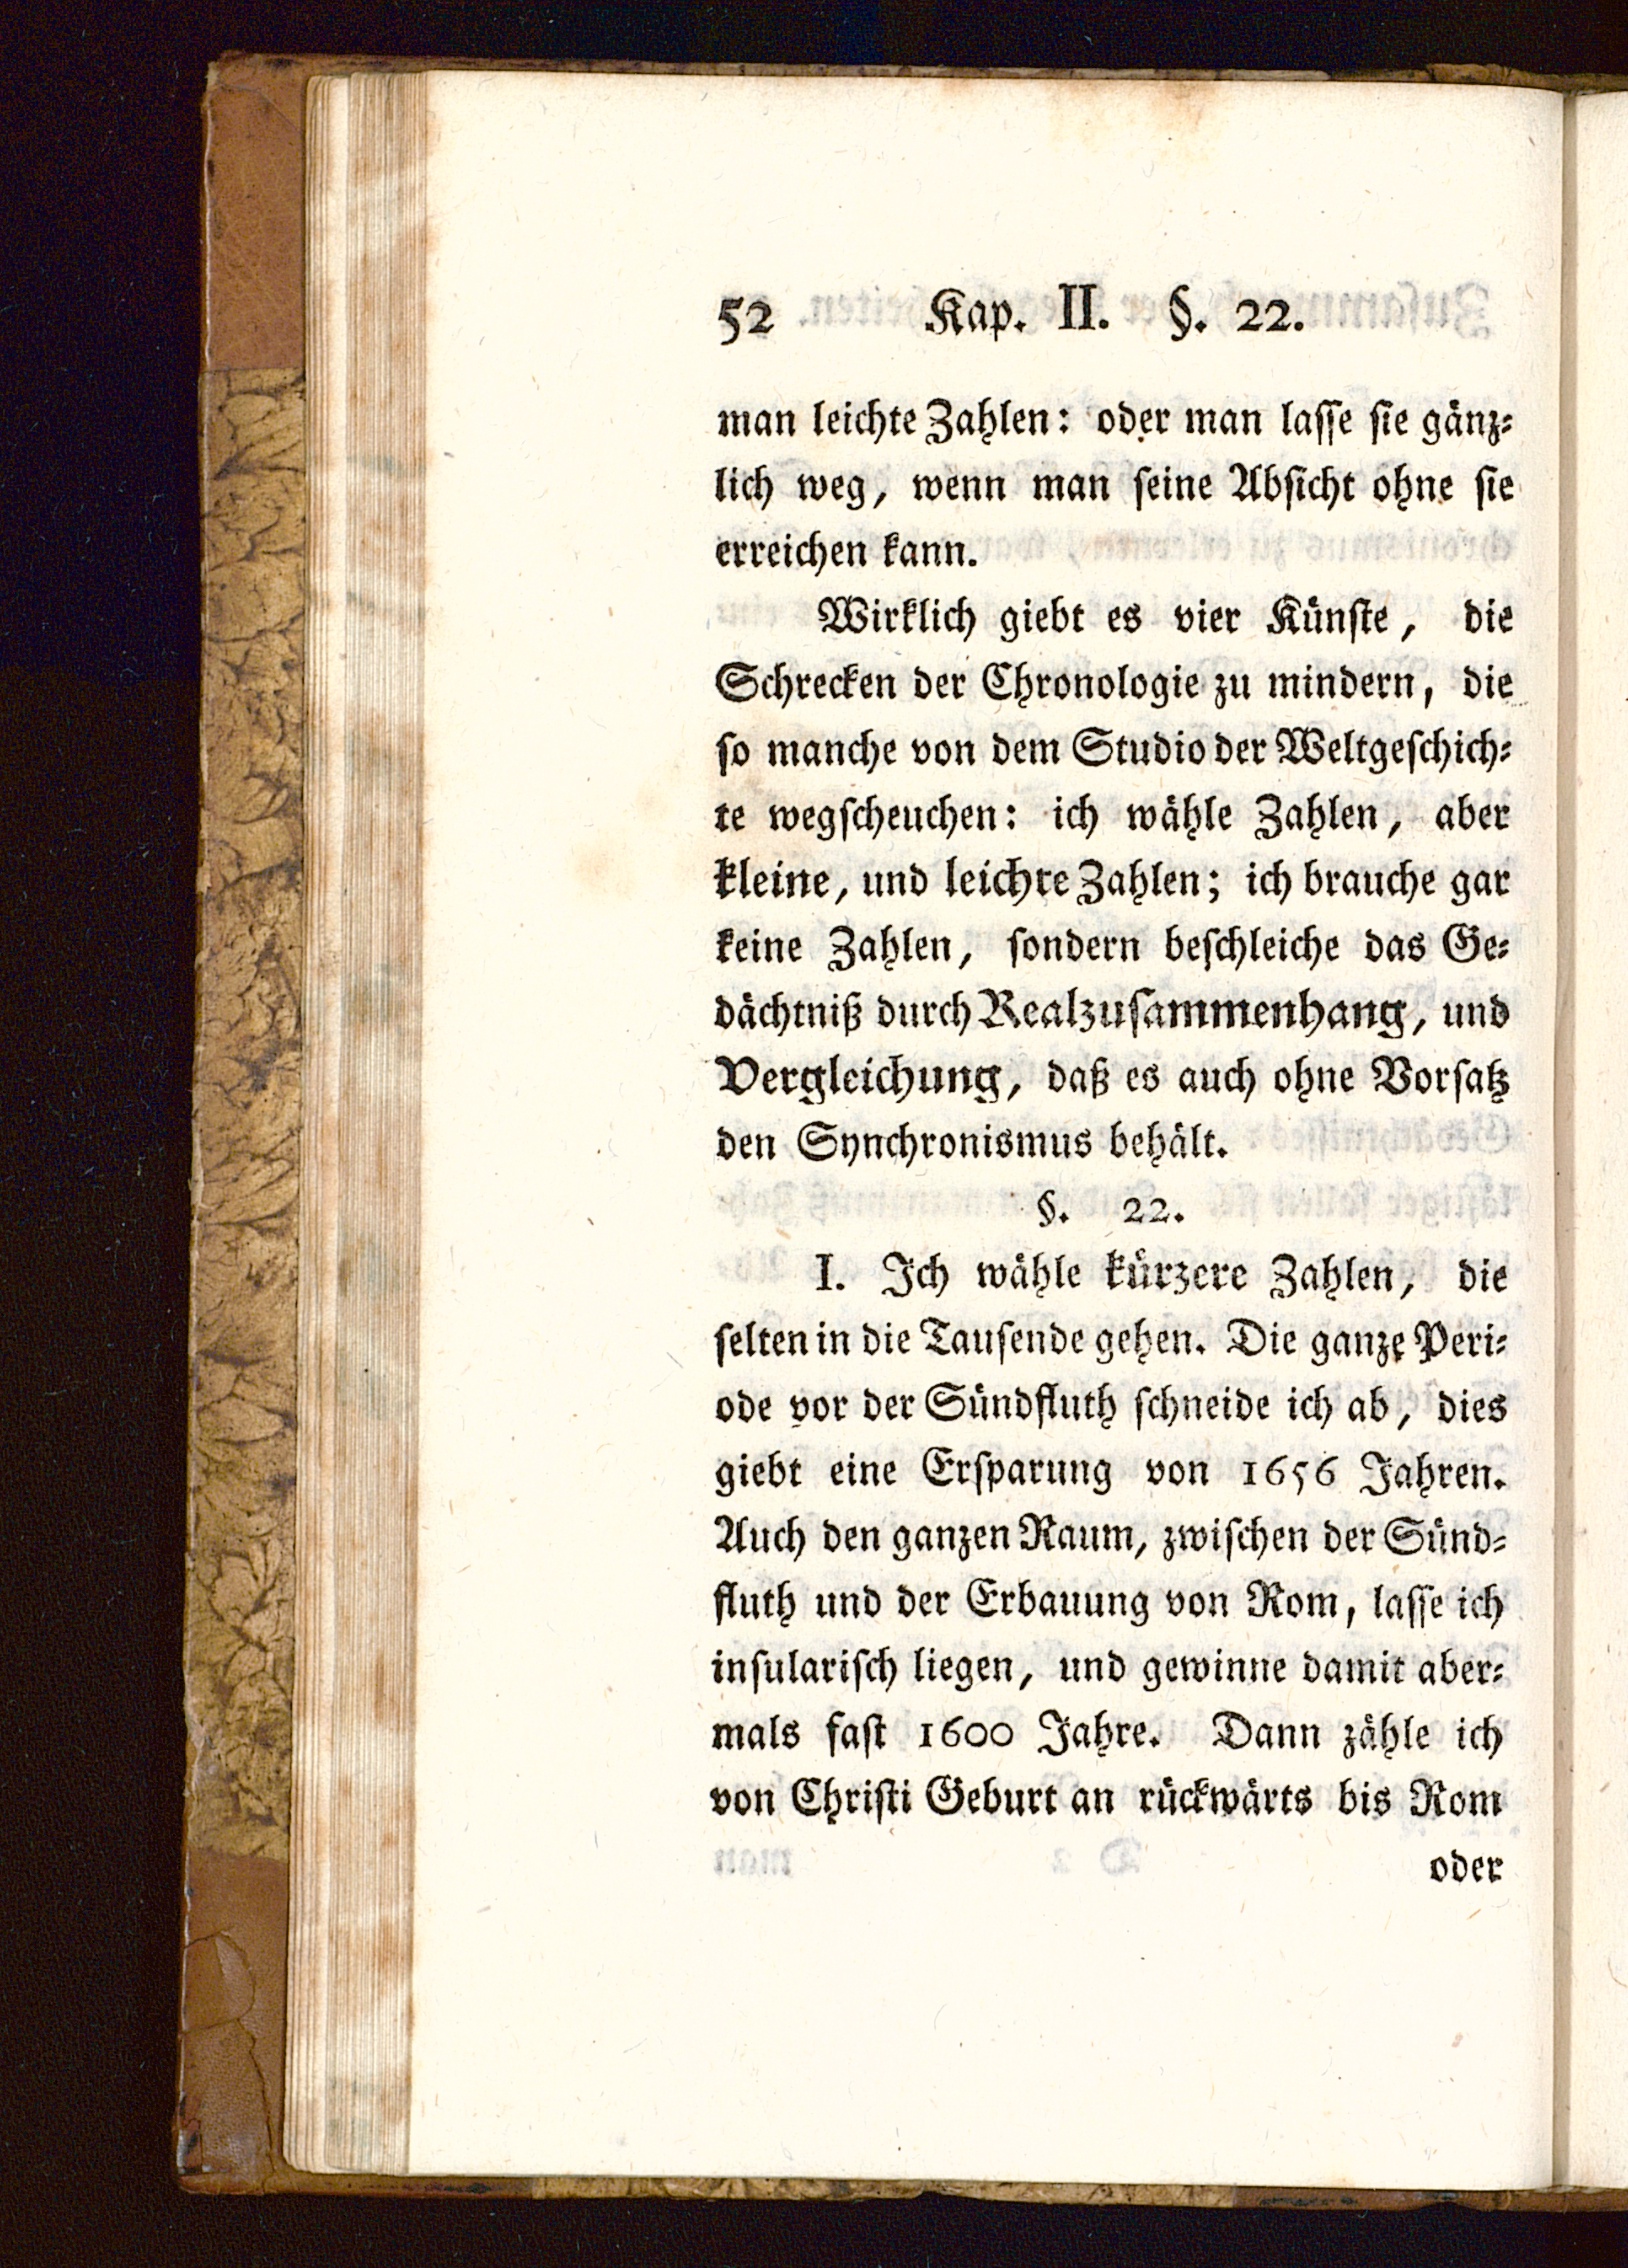 52 Kap. II. §. 22.
man leichte Zahlen: oder man laſſe ſie gänz⸗
lich weg, wenn man ſeine Abſicht ohne ſie
erreichen kann.
Wirklich giebt es vier Künſte, die
Schrecken der Chronologie zu mindern, die
ſo manche von dem Studio der Weltgeſchich⸗
te wegſcheuchen: ich wähle Zahlen, aber
kleine, und leichte Zahlen; ich brauche gar
keine Zahlen, ſondern beſchleiche das Ge⸗
dächtniß durch Realzuſammenhang, und
Vergleichung, daß es auch ohne Vorſatz
den Synchronismus behält.
§. 22.
I. Ich wähle kürzere Zahlen, die
ſelten in die Tauſende gehen. Die ganze Peri⸗
ode vor der Sündfluth ſchneide ich ab, dies
giebt eine Erſparung von 1656 Jahren.
Auch den ganzen Raum, zwiſchen der Sünd⸗
fluth und der Erbauung von Rom, laſſe ich
inſulariſch liegen, und gewinne damit aber⸗
mals faſt 1600 Jahre. Dann zähle ich
von Chriſti Geburt an rückwärts bis Rom
oder